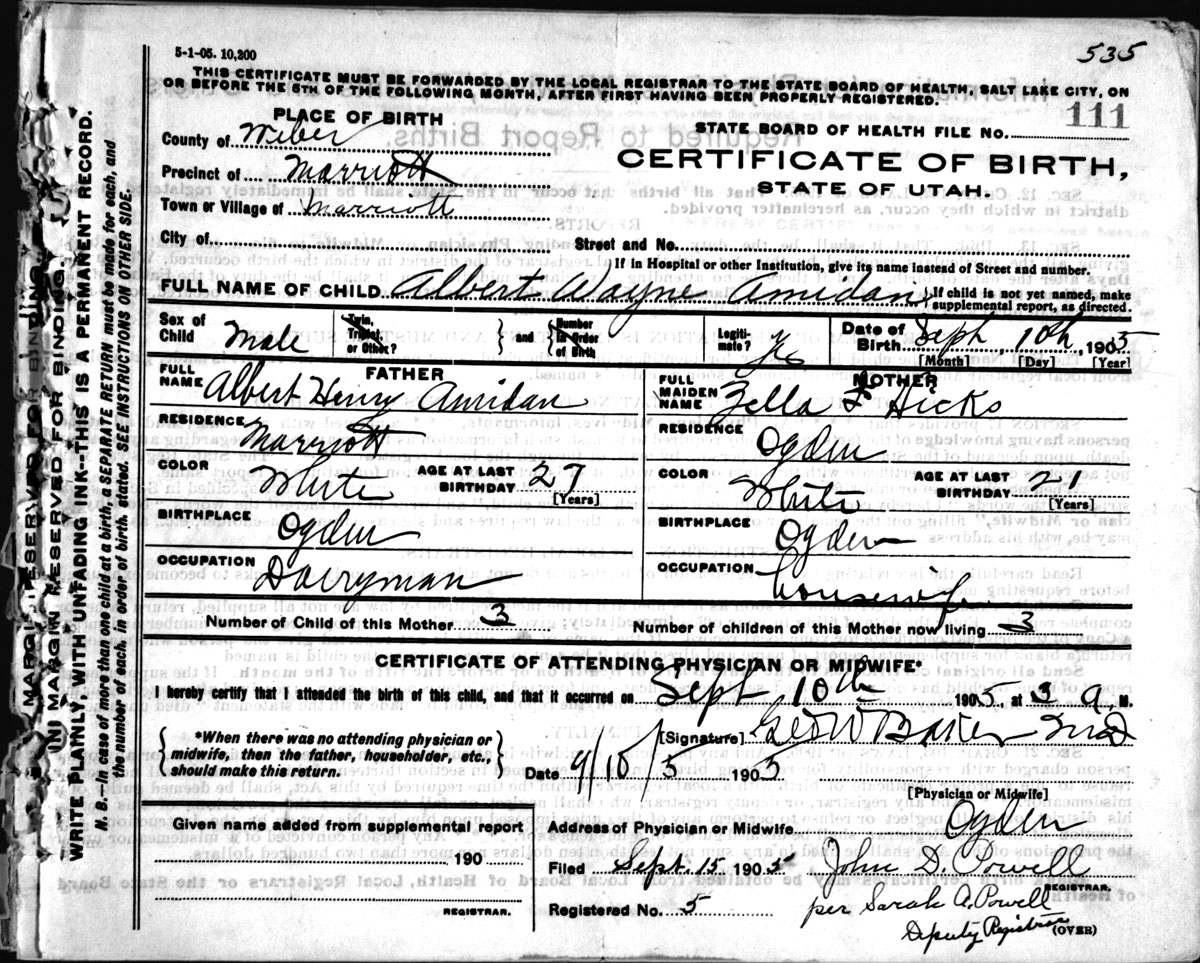 5-1-05. 10,200
535
THIS CERTIFICATE MUST BE FORWARDED BY THE LOCAL REGISTRAR TO THE STATE BOARD OF HEALTH, SALT LAKE CITY, ON
OR BEFORE THE 5TH OF THE FOLLOWING MONTH, AFTER FIRST HAVING BEEN PROPERLY REGISTERED.
111
PLACE OF BIRTH
STATE BOARD OF HEALTH FILE NO.
County of Weber
CERTIFICATE OF BIRTH,
Precinct of Marriott
STATE OF UTAH.
Town or Village of Marriott
City of Street and No.
If in Hospital or other Institution, give its name instead of Street and number.
FULL NAME OF CHILD Albert Wayne Amidan } If child is not yet named, make
supplemental report, as directed.
Sex of Child Male
Twin, Triplet, or Other? } and { Number in Order of Birth
Legiti-mate? Yes
Date of Birth Sept 10th, 1905
[Month] [Day] [Year]
FATHER
FULL NAME Albert Henry Amidan
RESIDENCE Marriott
COLOR White AGE AT LAST BIRTHDAY 27
[Years]
BIRTHPLACE
Ogden
OCCUPATION Dairyman
MOTHER
FULL MAIDEN NAME Zella F Hicks
RESIDENCE
Ogden
COLOR White AGE AT LAST BIRTHDAY 21
[Years]
BIRTHPLACE
Ogden
OCCUPATION
housewife
Number of Child of this Mother 3 Number of children of this Mother now living 3
CERTIFICATE OF ATTENDING PHYSICIAN OR MIDWIFE*
I hereby certify that I attended the birth of this child, and that it occurred on Sept 10th 1905, at 3 a. M.
{ *When there was no attending physician or
midwife, then the father, householder, etc.,
should make this return. }
[Signature] Geo W Baker MD
Date 9/10/5 1905
[Physician or Midwife]
Given name added from supplemental report
190
REGISTRAR.
Address of Physician or Midwife Ogden
Filed Sept. 15 1905 John D. Powell
REGISTRAR.
Registered No. 5 per Sarah A. Powell
Deputy Registrar
(OVER)
MARGIN RESERVED FOR BINDING.
IN MARGIN RESERVED FOR BINDING.
WRITE PLAINLY, WITH UNFADING INK--THIS IS A PERMANENT RECORD.
N. B.--In case of more than one child at a birth, a SEPARATE RETURN must be made for each, and
the number of each, in order of birth, stated. SEE INSTRUCTIONS ON OTHER SIDE.